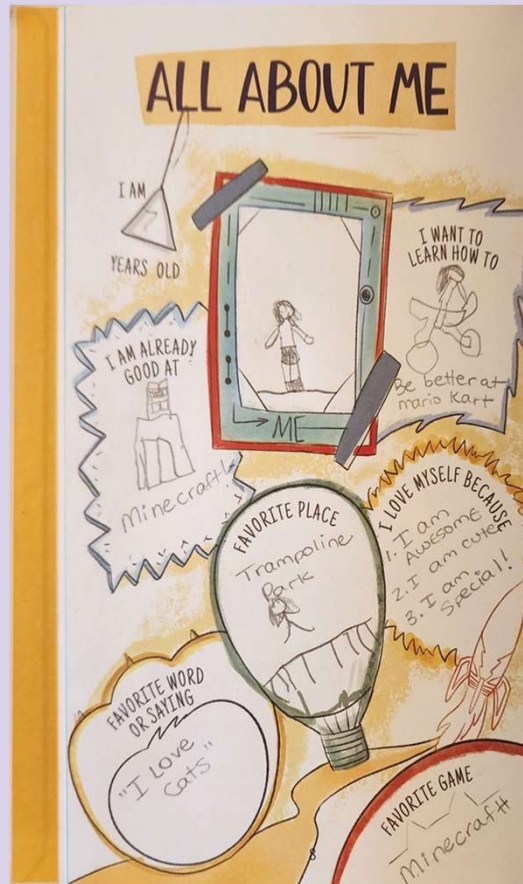 ALL ABOUT ME
I AM
7
YEARS OLD
ME
I WANT TO
LEARN HOW TO
Be better at
mario Kart
I AM ALREADY
GOOD AT
Minecraft!
FAVORITE PLACE
Trampoline
Park
I LOVE MYSELF BECAUSE
1. I am
AWESOME
2. I am cute
3. I am
Special!
FAVORITE WORD
OR SAYING
"I LOVE
Cats"
FAVORITE GAME
Minecraft
8